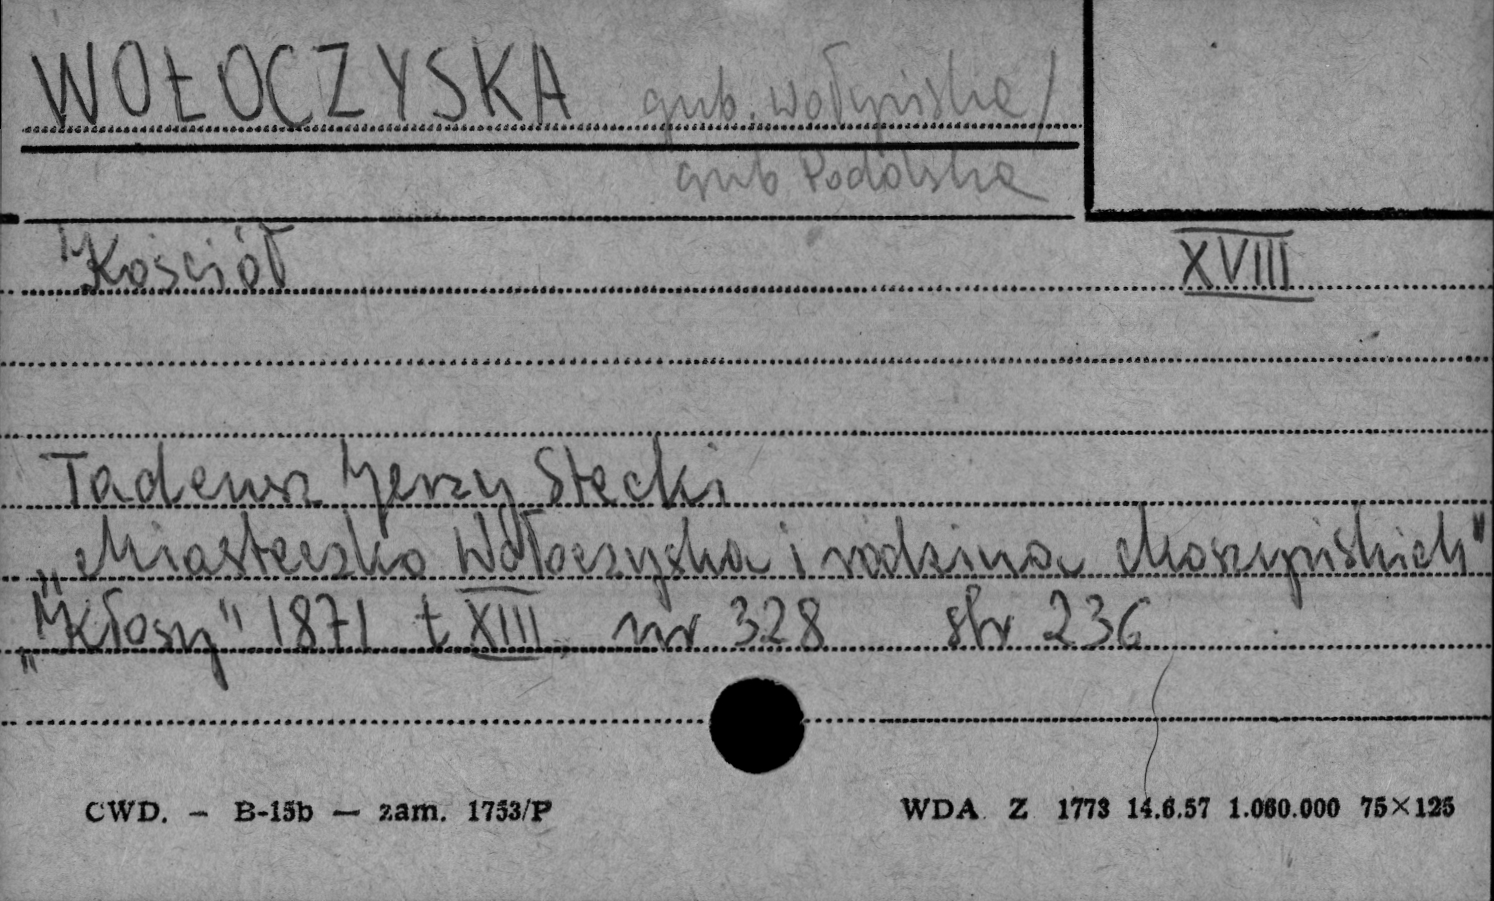 WOŁOCZYSKA gub. wołyńska /
gub Podolska
Kościół XVIII
Tadeusz Jerzy Stecki
„Miasteczko Wołoczyska i rodzina Moszyńskich"
„Kłosy" 1871 t XIII nr 328 str 236
CWD. — B-15b — zam. 1753/P WDA Z 1773 14.6.57 1.060.000 75×125